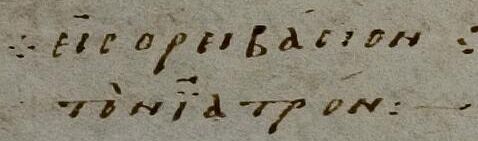 ⁘ εἰς ορειβάσιον ⁘
τὸν ἰατρόν: —